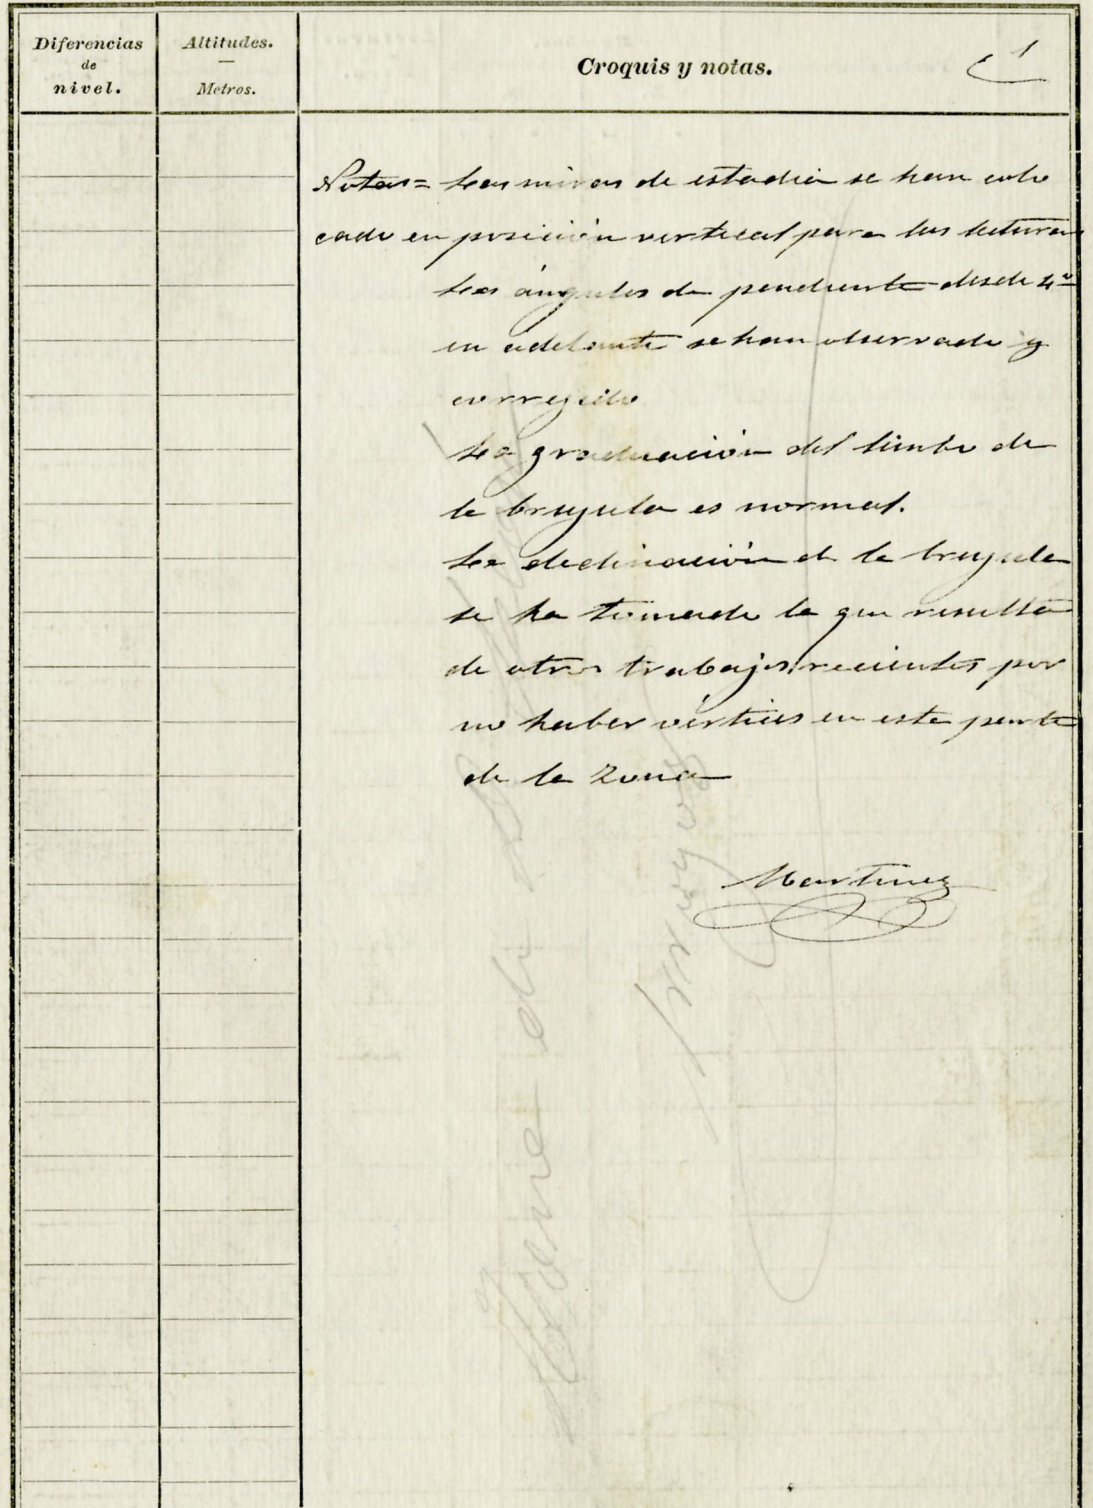 Diferencias
de
nivel.
Altitudes.
Metros.
Croquis y notas.
1
Notas= Las miras de estadia se han colo
cado en posición vertical para las leturas
Los ángulos de pendiente desde 4º
en adelante se han observado y
corregido
La graduación del limbo de
la brujula es normal.
La declinación de la brujula
se ha tomado la que resulta
de otros trabajos recientes por
no haber vértices en esta parte
de la zona
Martinez